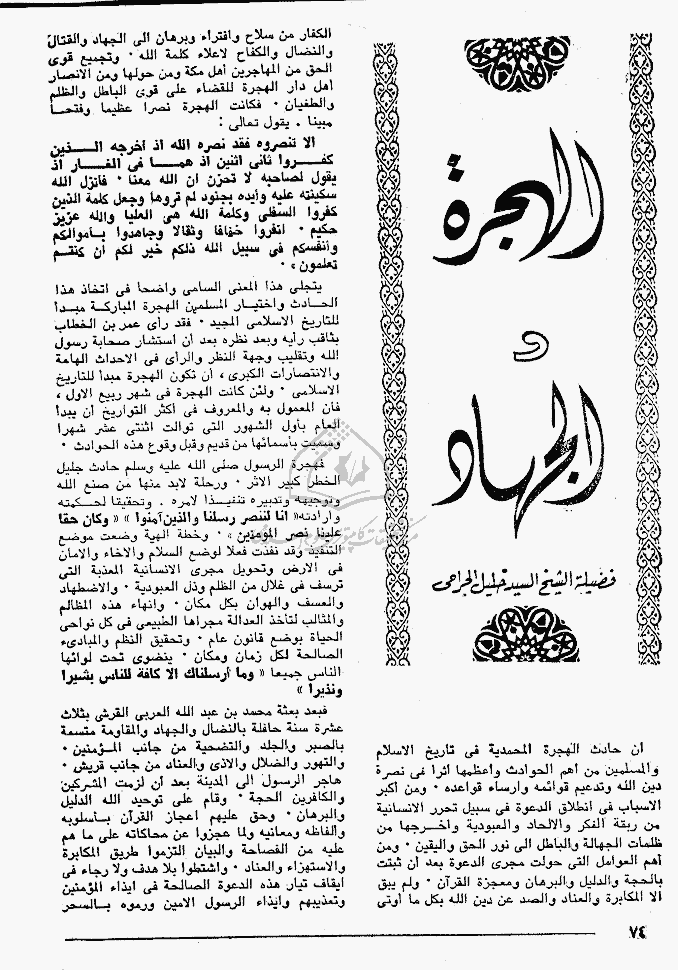 الهجرة
و
الجهاد
فضيلة الشيخ السيد خليل الجراحى
أن حادث الهجرة المحمدية فى تاريخ الاسلام
والمسلمين من أهم الحوادث وأعظمها أثرا فى نصرة
دين الله وتدعيم قوائمه وارساء قواعده ٠ ومن أكبر
الاسباب فى انطلاق الدعوة فى سبيل تحرر الانسانية
من ربقة الفكر والالحاد والعبودية واخرجها من
ظلمات الجهالة والباطل الى نور الحق واليقين ٠ ومن
أهم العوامل التى حولت مجرى الدعوة بعد أن ثبتت
بالحجة والدليل والبرهان ومعجزة القرآن ٠ ولم يبق
الا المكابرة والعناد والصد عن دين الله بكل ما أوتى
الكفار من سلاح وافتراء وبرهان الى الجهاد والقتال
والنضال والكفاح لاعلاء كلمة الله ٠ وتجميع قوى
الحق من المهاجرين أهل مكة ومن حولها ومن الانصار
أهل دار الهجرة للقضاء على قوى الباطل والظلم
والطغيان ٠ فكانت الهجرة نصرا عظيما وفتحا
مبينا . يقول تعالى :
الا تنصروه فقد نصره الله اذ أخرجه الذين
كفروا ثانى اثنين اذ هما فى الغار اذ
يقول لصاحبه لا تحزن ان الله معنا ٠ فانزل الله
سكينته عليه وأيده بجنود لم تروها وجعل كلمة الذين
كفروا السفلى وكلمة الله هى العليا والله عزيز
حكيم ٠ انفروا خفافا وثقالا وجاهدوا بأموالكم
وأنفسكم فى سبيل الله ذلكم خير لكم أن كنتم
تعلمون » ٠
يتجلى هذا المعنى السامى واضحا فى اتخاذ هذا
الحادث واختيار المسلمين الهجرة المباركة مبدأ
للتاريخ الاسلامى المجيد ٠ فقد رأى عمر بن الخطاب
بثاقب رأيه وبعد نظره بعد أن استشار صحابة رسول
الله وتقليب وجهة النظر والرأى فى الاحداث الهامة
والانتصارات الكبرى ، أن تكون الهجرة مبدأ للتاريخ
الاسلامى ٠ ولئن كانت الهجرة فى شهر ربيع الاول ،
فأن المعمول به والمعروف فى أكثر التواريخ أن يبدأ
العام بأول الشهور التى توالت اثنتى عشر شهرا
وسميت بأسمائها من قديم وقبل وقوع هذه الحوادث ٠
فهجرة الرسول صلى الله عليه وسلم حادث جليل
الخطر كبير الاثر ٠ ورحلة لابد منها من صنع الله
وتوجيهه وتدبيره تنفيذا لامره . وتحقيقا لحكمته
وارادته« انا لننصر رسلنا والذين آمنوا » « وكان حقا
علينا نصر المؤمنين » ٠ وخطة الهية وضعت موضع
التنفيذ وقد نفذت فعلا لوضع السلام والاخاء والامان
فى الارض وتحويل مجرى الانسانية المعذبة التى
ترسف فى غلال من الظلم وذل العبودية ٠ والاضطهاد
والعسف والهوان بكل مكان ٠ وانهاء هذه المظالم
والمثالب لتأخذ العدالة مجراها الطبيعى فى كل نواحى
الحياة بوضع قانون عام ٠ وتحقيق النظم والمبادىء
الصالحة لكل زمان ومكان ٠ ينضوى تحت لوائها
الناس جميعا « وما أرسلناك الا كافة للناس بشيرا
ونذيرا »
فبعد بعثة محمد بن عبد الله العربى القرشى بثلاث
عشرة سنة حافلة بالنضال والجهاد والمقاومة متسمة
بالصبر والجلد والتضحية من جانب المؤمنين ٠
والتهور والضلال والاذى والعناد من جانب قريش ٠
هاجر الرسول الى المدينة بعد أن لزمت المشركين
والكافرين الحجة ٠ وقام على توحيد الله الدليل
والبرهان ٠ وحق عليهم اعجاز القرآن بأسلوبه
والفاظه ومعانيه ولما عجزوا عن محاكاته على ما هم
عليه من الفصاحة والبيان التزموا طريق المكابرة
والاستهزاء والعناد ٠ واشتطوا بلا هدف ولا رجاء فى
ايقاف تيار هذه الدعوة الصالحة فى ايذاء المؤمنين
وتعذيبهم وايذاء الرسول الامين ورموه بالسحر
٧٤